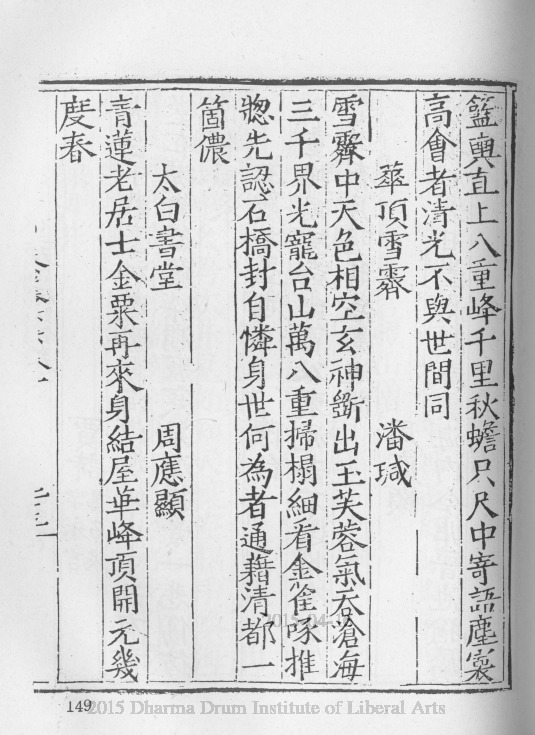 籃輿直上八重峰千里秋蟾只尺中寄語塵寰
高會者清光不與世間同
華頂雪霽
潘珹
雪霽中天色相空玄神斲出玉芙蓉氣吞滄海
三千界光寵台山萬八重掃榻細看金雀啄推
窻先認石橋封自憐身世何為者通藉清都一
箇儂
太白書堂
周應顯
青蓮老居士金粟再來身結屋華峰頂開元幾
度春
149
2015 Dharma Drum Institute of Liberal Arts